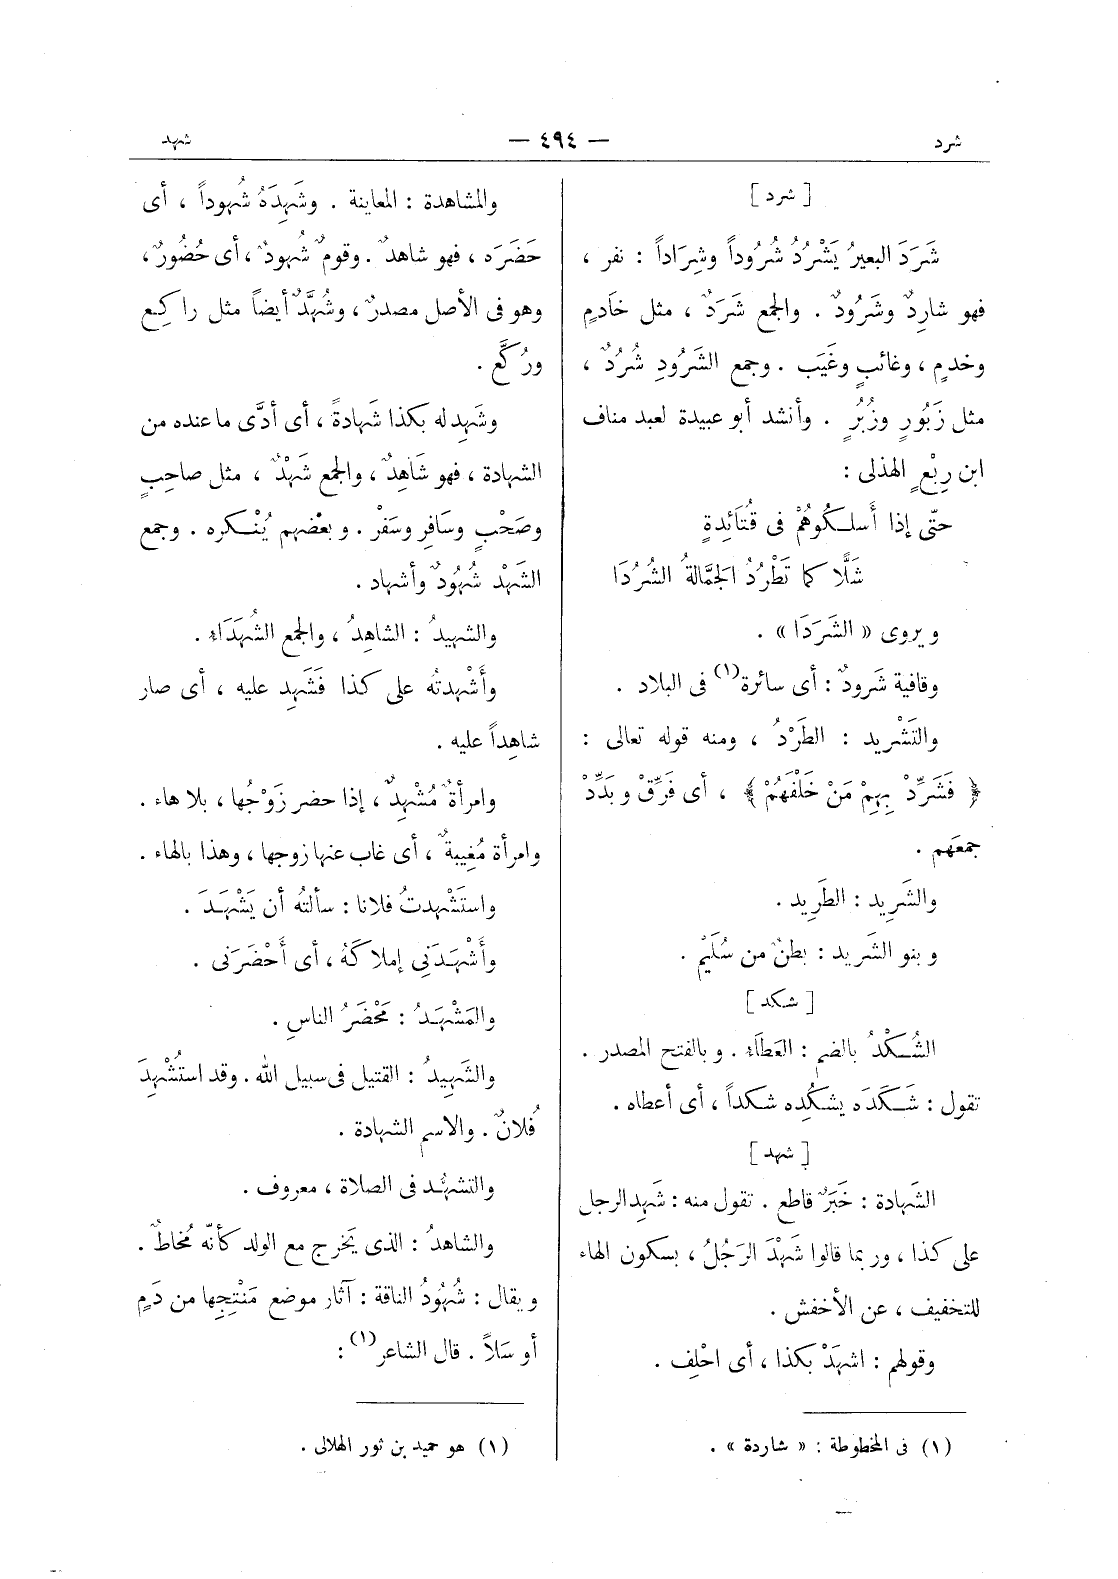 شرد — ٤٩٤ — شهد
[ شرد ]
شَرَدَ البعيرُ يَشْرُدُ شُرُوداً وشِرَاداً : نفر ،
فهو شارِدٌ وشَرُودٌ . والجمع شَرَدٌ ، مثل خَادمٍ
وخدمٍ ، وغائبٍ وغَيَب . وجمع الشَرُودِ شُرُدٌ ،
مثل زَبُورٍ وزُبُرٍ . وأنشد أبو عبيدة لعبد مناف
ابن رِبْعٍ الهذلى :
حتّى إذا أَسلكُوهُمْ فى قُتَائِدةٍ
شَلًّا كما تَطْرُدُ الجَمَّالةُ الشُرُدَا
ويروى « الشَرَدَا » .
وقافية شَرودٌ : أى سائرة(١) فى البلاد .
والتَشْريد : الطَرْدُ ، ومنه قوله تعالى :
﴿ فَشَرِّدْ بِهِمْ مَنْ خَلْفَهُمْ ﴾ ، أى فَرِّقْ وبَدِّدْ
جمعَهم .
والشَرِيد : الطَرِيد .
وبنو الشَريد : بطنٌ من سُلَيْمٍ .
[ شكد ]
الشُكْدُ بالضم : العَطَاء . وبالفتح المصدر .
تقول : شَكَدَه يشكُده شكداً ، أى أعطاه .
[ شهد ]
الشَهادة : خَبَرٌ قاطع . تقول منه : شَهِد الرجل
على كذا ، وربما قالوا شَهْدَ الرَجُلُ ، بسكون الهاء
للتخفيف ، عن الأخفش .
وقولهم : اشهَدْ بكذا ، أى احْلِف .
(١) فى المخطوطة : « شاردة » .
والمشاهدة : المعاينة . وشَهِدَهُ شُهوداً ، أى
حَضَرَه ، فهو شاهدٌ . وقومٌ شُهودٌ ، أى حُضُورٌ ،
وهو فى الأصل مصدرٌ ، وشُهَّدٌ أيضاً مثل راكِع
ورُكَّع .
وشَهِد له بكذا شَهادةً ، أى أدَّى ما عنده من
الشهادة ، فهو شَاهِدٌ ، والجمع شَهْدٌ ، مثل صاحِبٍ
وصَحْبٍ وسَافِرٍ وسَفْرٍ . وبعْضهم يُنْكره . وجمع
الشَهْدِ شُهُودٌ وأشهاد .
والشهيدُ : الشاهِدُ ، والجمع الشُهَدَاء .
وأَشْهدتُه على كذا فَشَهِد عليه ، أى صار
شاهِداً عليه .
وامرأةٌ مُشْهِدٌ ، إذا حضر زَوْجُها ، بلا هاء .
وامرأة مُغِيبةٌ ، أى غاب عنها زوجها ، وهذا بالهاء .
واستَشْهدتُ فلانا : سألتُه أن يَشْهَدَ .
وأَشْهَدَنِى إملاكَهُ ، أى أَحْضَرَنى .
والمَشْهَدُ : مَحْضَرُ الناسِ .
والشَهِيدُ : القتيل فى سبيل الله . وقد استُشْهِدَ
فُلانٌ . والاسم الشهادة .
والتشهُّد فى الصلاة ، معروف .
والشاهدُ : الذى يَخرج مع الولد كأنَّه مُخاطٌ .
ويقال : شُهُودُ الناقة : آثار موضع مَنْتِجِها من دَمٍ
أو سَلاً . قال الشاعر(١) :
(١) هو حميد بن ثور الهلالى .